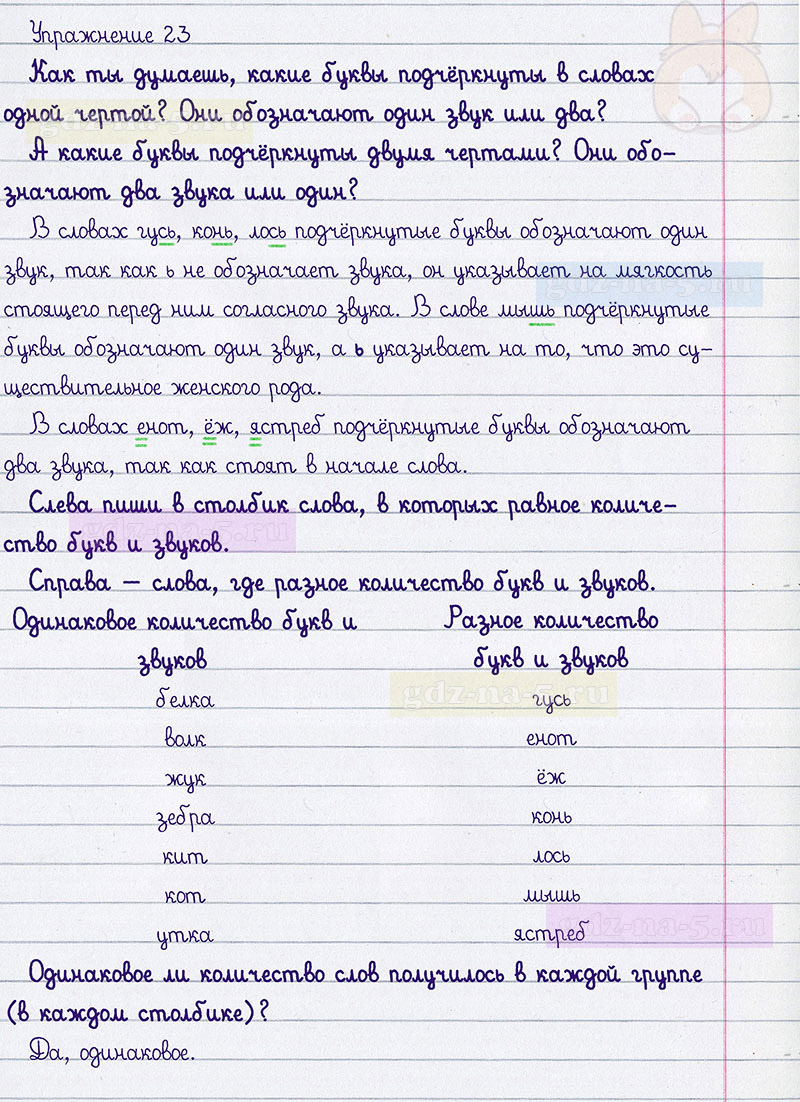 Упражнение 23
Как ты думаешь, какие буквы подчёркнуты в словах
одной чертой? Они обозначают один звук или два?
gdz-na-5.ru
А какие буквы подчёркнуты двумя чертами? Они обо-
значают два звука или один?
В словах гусь, конь, лось подчёркнутые буквы обозначают один
звук, так как ь не обозначает звука, он указывает на мягкость
gdz-na-5.ru
стоящего перед ним согласного звука. В слове мышь подчёркнутые
буквы обозначают один звук, а ь указывает на то, что это су-
ществительное женского рода.
В словах енот, ёж, ястреб подчёркнутые буквы обозначают
два звука, так как стоят в начале слова.
Слева пиши в столбик слова, в которых равное количе-
gdz-na-5.ru
ство букв и звуков.
Справа — слова, где разное количество букв и звуков.
Одинаковое количество букв и
звуков
белка
волк
жук
зебра
кит
кот
утка
Разное количество
букв и звуков
gdz-na-5.ru
гусь
енот
ёж
конь
лось
мышь
ястреб
gdz-na-5.ru
Одинаковое ли количество слов получилось в каждой группе
(в каждом столбике)?
Да, одинаковое.